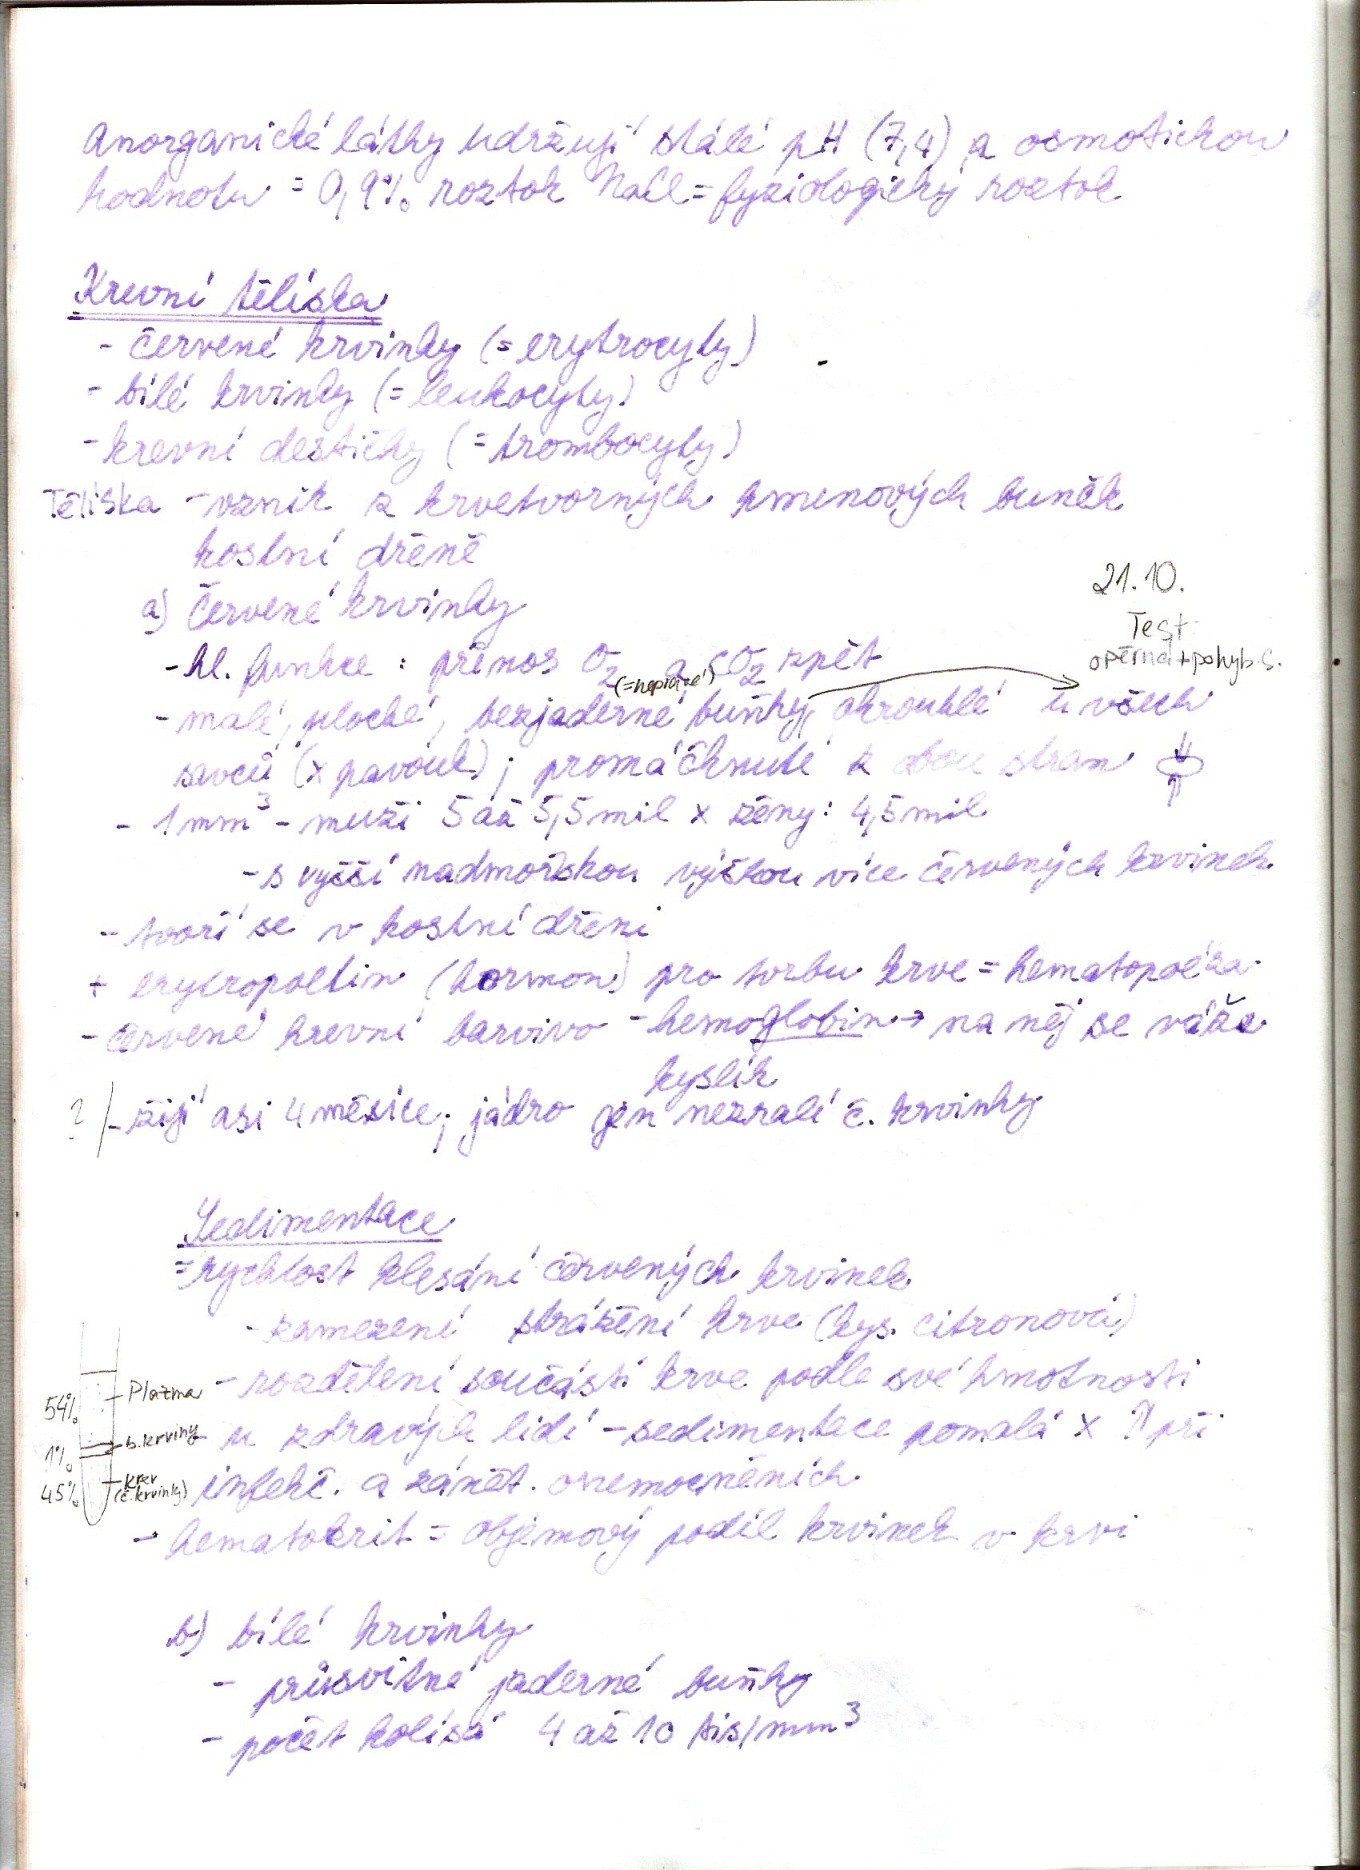 anorganické látky udržují stálé pH (7,4) a osmotickou
hodnotu = 0,9% roztok NaCl = fyziologický roztok
Krevní tělíska
- červené krvinky (= erytrocyty)
- bílé krvinky (= leukocyty)
- krevní destičky (= trombocyty)
Tělíska - vznik z krvetvorných kmenových buněk
kostní dřeně
a) červené krvinky
21.10.
Test
opěrná + pohyb. s.
- hl. funkce: přenos O2 a CO2 zpět
(= nepravé)
- malé, ploché, bezjaderné buňky, okrouhlé u všech
savců (x pavouk); promáčknuté z obou stran
- 1mm3 - muži 5 až 5,5 mil x ženy: 4,5 mil
- s vyšší nadmořskou výškou více červených krvinek
- tvoří se v kostní dřeni
+ erytropoetin (hormon) pro tvorbu krve = hematopoéza
- červené krevní barvivo - hemoglobin → na něj se váže
kyslík
? / - žijí asi 4 měsíce; jádro jen nezralé č. krvinky
Sedimentace
= rychlost klesání červených krvinek
- zamezení srážení krve (kys. citronová)
- rozdělení součástí krve podle své hmotnosti
- u zdravých lidí - sedimentace pomalá x ↑ při
infekč. a zánět. onemocněních
54% Plazma
1% b. krvinky
45% krev (č. krvinky)
- hematokrit = objemový podíl krvinek v krvi
b) bílé krvinky
- průsvitné jaderné buňky
- počet kolísá 4 až 10 tis/mm3